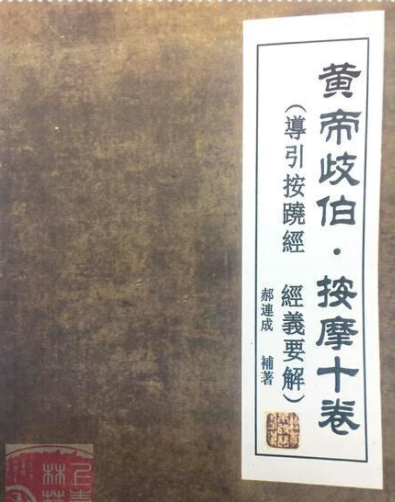 黄帝歧伯·按摩十卷
（導引按蹺經 經義要解）
郝連成 補著